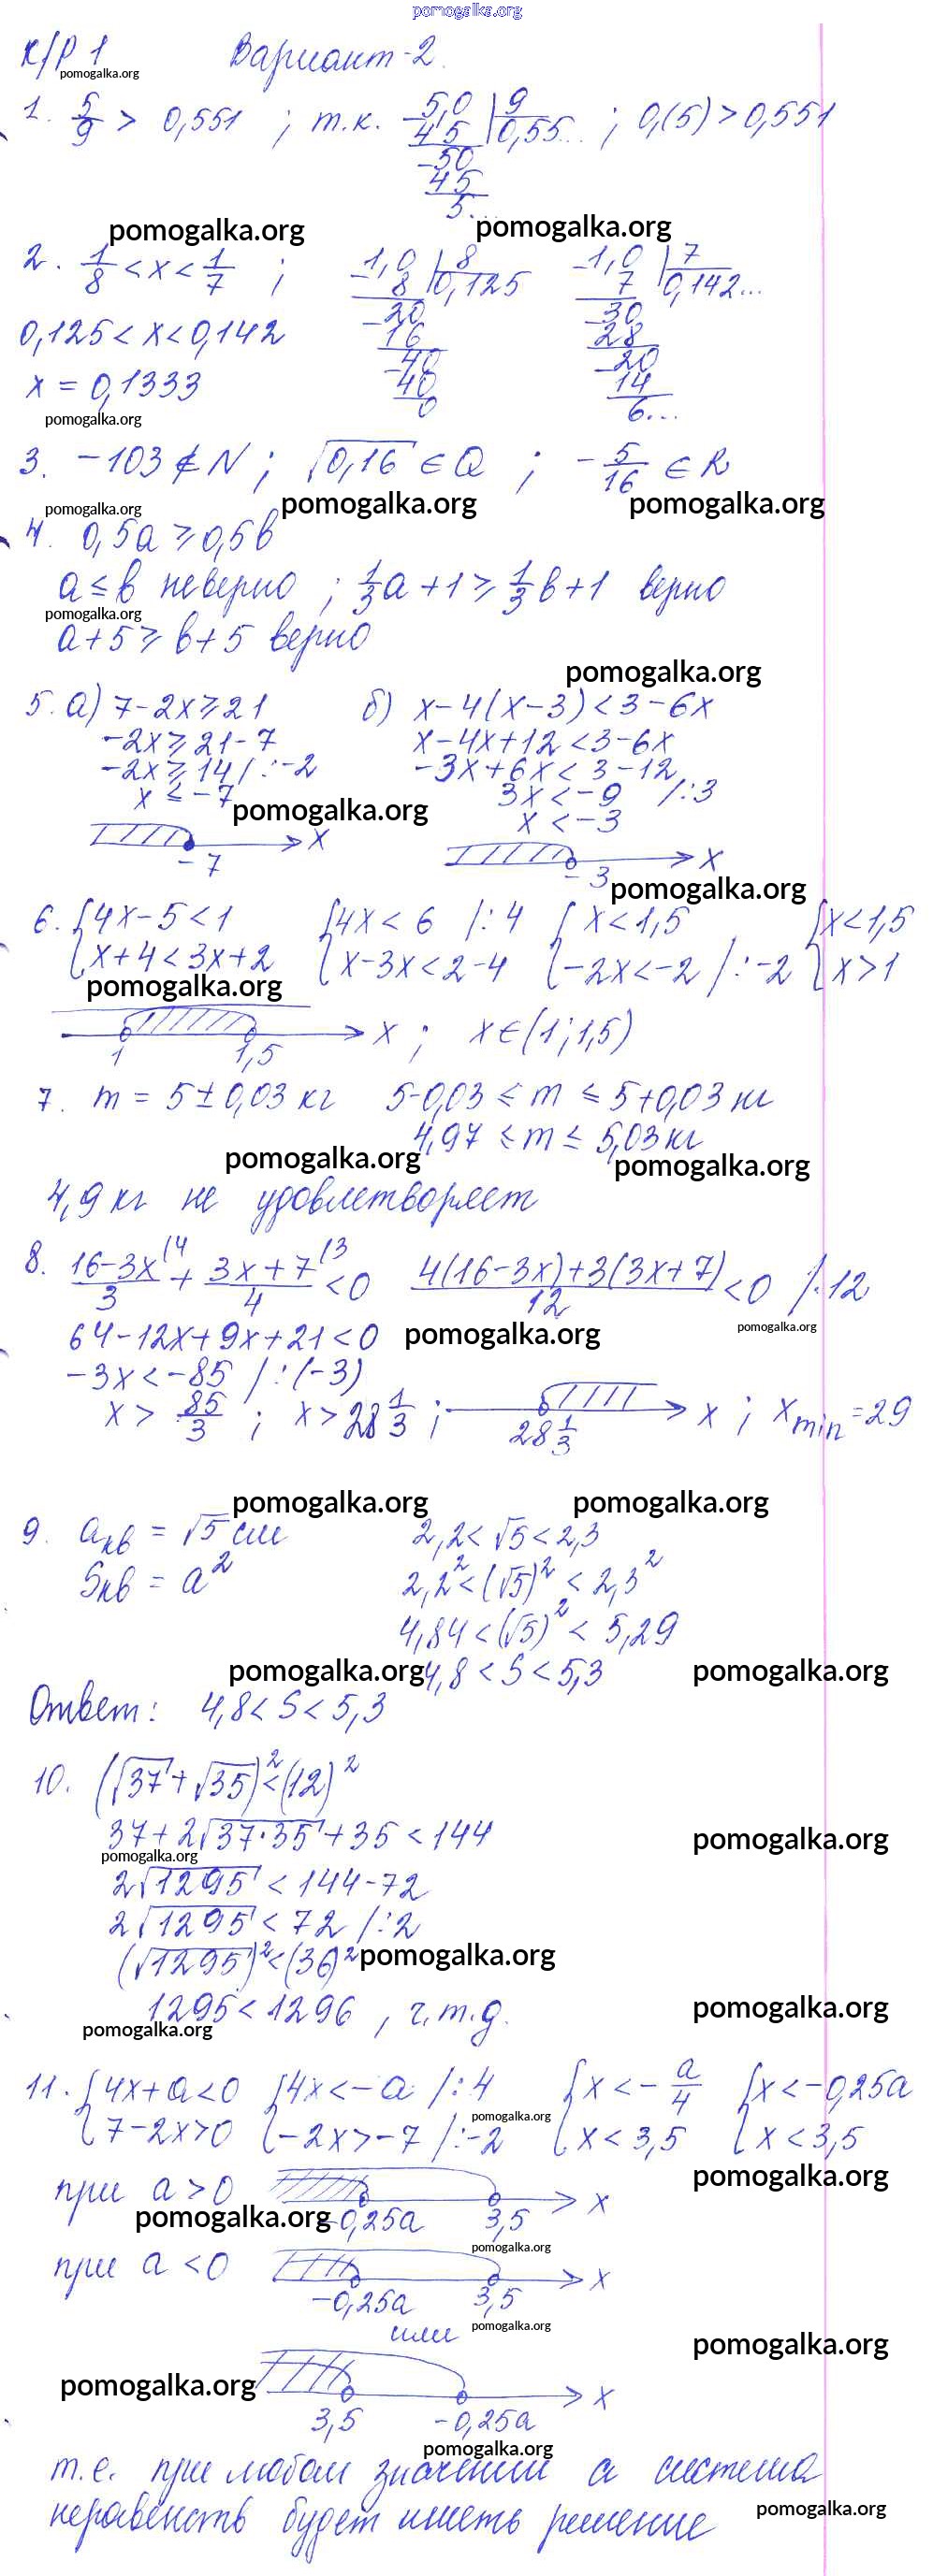 pomogalka.org
К/Р 1 Вариант-2.
pomogalka.org
1. 5/9 > 0,551 ; т.к. 5,0 | 9 ; 0,(5) > 0,551
45 0,55...
-50
45
5...
pomogalka.org pomogalka.org
2. 1/8 < x < 1/7 ; -1,0 | 8 -1,0 | 7
8 0,125 7 0,142...
0,125 < x < 0,142 -20 -30
16 28
x = 0,1333 -40 -20
40 14
0 6...
pomogalka.org
3. -103 ∉ N ; √0,16 ∈ Q ; -5/16 ∈ R
pomogalka.org pomogalka.org pomogalka.org
4. 0,5a ≥ 0,5b
a ≤ b неверно ; 1/3a + 1 ≥ 1/3b + 1 верно
pomogalka.org
a + 5 ≥ b + 5 верно
pomogalka.org
5. а) 7 - 2x ≥ 21 б) x - 4(x - 3) < 3 - 6x
-2x ≥ 21 - 7 x - 4x + 12 < 3 - 6x
-2x ≥ 14 /:-2 -3x + 6x < 3 - 12
x ≤ -7 3x < -9 /:3
pomogalka.org x < -3
x
-7 x
-3
pomogalka.org
6. {4x - 5 < 1 {4x < 6 /:4 {x < 1,5 {x < 1,5
{x + 4 < 3x + 2 {x - 3x < 2 - 4 {-2x < -2 /:-2 {x > 1
pomogalka.org
x ; x ∈ (1; 1,5)
1 1,5
7. m = 5 ± 0,03 кг 5 - 0,03 ≤ m ≤ 5 + 0,03 кг
4,97 ≤ m ≤ 5,03 кг
pomogalka.org pomogalka.org
4,9 кг не удовлетворяет
8. 16-3x/3 (4 + 3x+7/4 (3 < 0 4(16-3x)+3(3x+7)/12 < 0 /·12
64 - 12x + 9x + 21 < 0 pomogalka.org pomogalka.org
-3x < -85 /:(-3)
x > 85/3 ; x > 28 1/3 ; x ; xmin = 29
28 1/3
pomogalka.org pomogalka.org
9. aкв = √5 см 2,2 < √5 < 2,3
Sкв = a² 2,2² < (√5)² < 2,3²
4,84 < (√5)² < 5,29
pomogalka.org 4,8 < S < 5,3 pomogalka.org
Ответ: 4,8 < S < 5,3
10. (√37 + √35)² < (12)²
37 + 2√37·35 + 35 < 144 pomogalka.org
pomogalka.org
2√1295 < 144 - 72
2√1295 < 72 /:2
(√1295)² < (36)² pomogalka.org
1295 < 1296 , ч.т.д. pomogalka.org
pomogalka.org
11. {4x + a < 0 {4x < -a /:4 {x < -a/4 {x < -0,25a
{7 - 2x > 0 {-2x > -7 /:-2 {x < 3,5 {x < 3,5
pomogalka.org
при a > 0 x pomogalka.org
pomogalka.org -0,25a 3,5
pomogalka.org
при a < 0 x
-0,25a 3,5
или pomogalka.org
pomogalka.org
pomogalka.org x
3,5 -0,25a
pomogalka.org
т.е. при любом значении a система
неравенств будет иметь решение
pomogalka.org